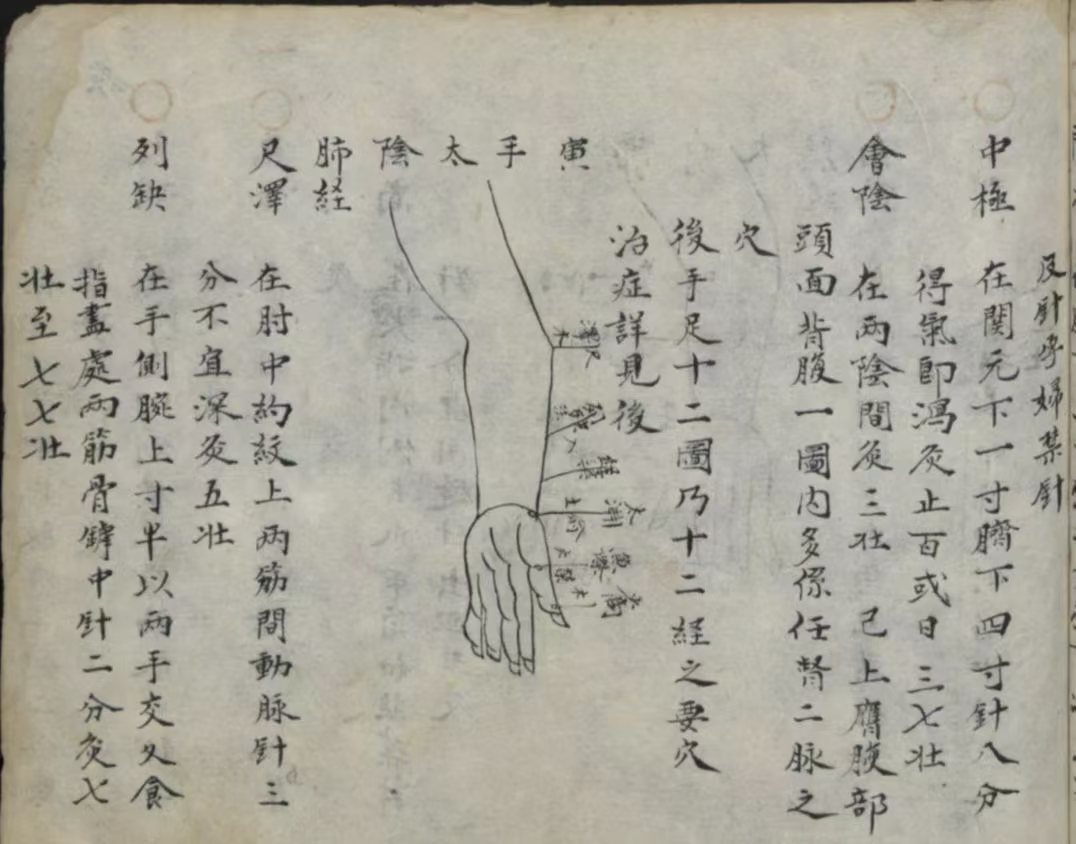 反針孕婦禁針
中極 在関元下一寸臍下四寸針八分
得氣即瀉灸止百或日三七壯
會陰 在兩陰間灸三壯 已上膺腹部
頭面背腹一圖内多係任督二脉之
穴
後手足十二圖乃十二経之要穴
治症詳見後
寅手太陰
肺経
尺澤
列缺
太淵
魚際
尺澤 在肘中約紋上兩筋間動脉針三
分不宜深灸五壯
列缺 在手側腕上寸半以兩手交叉食
指盡處兩筋骨罅中針二分灸七
壯至七七壯